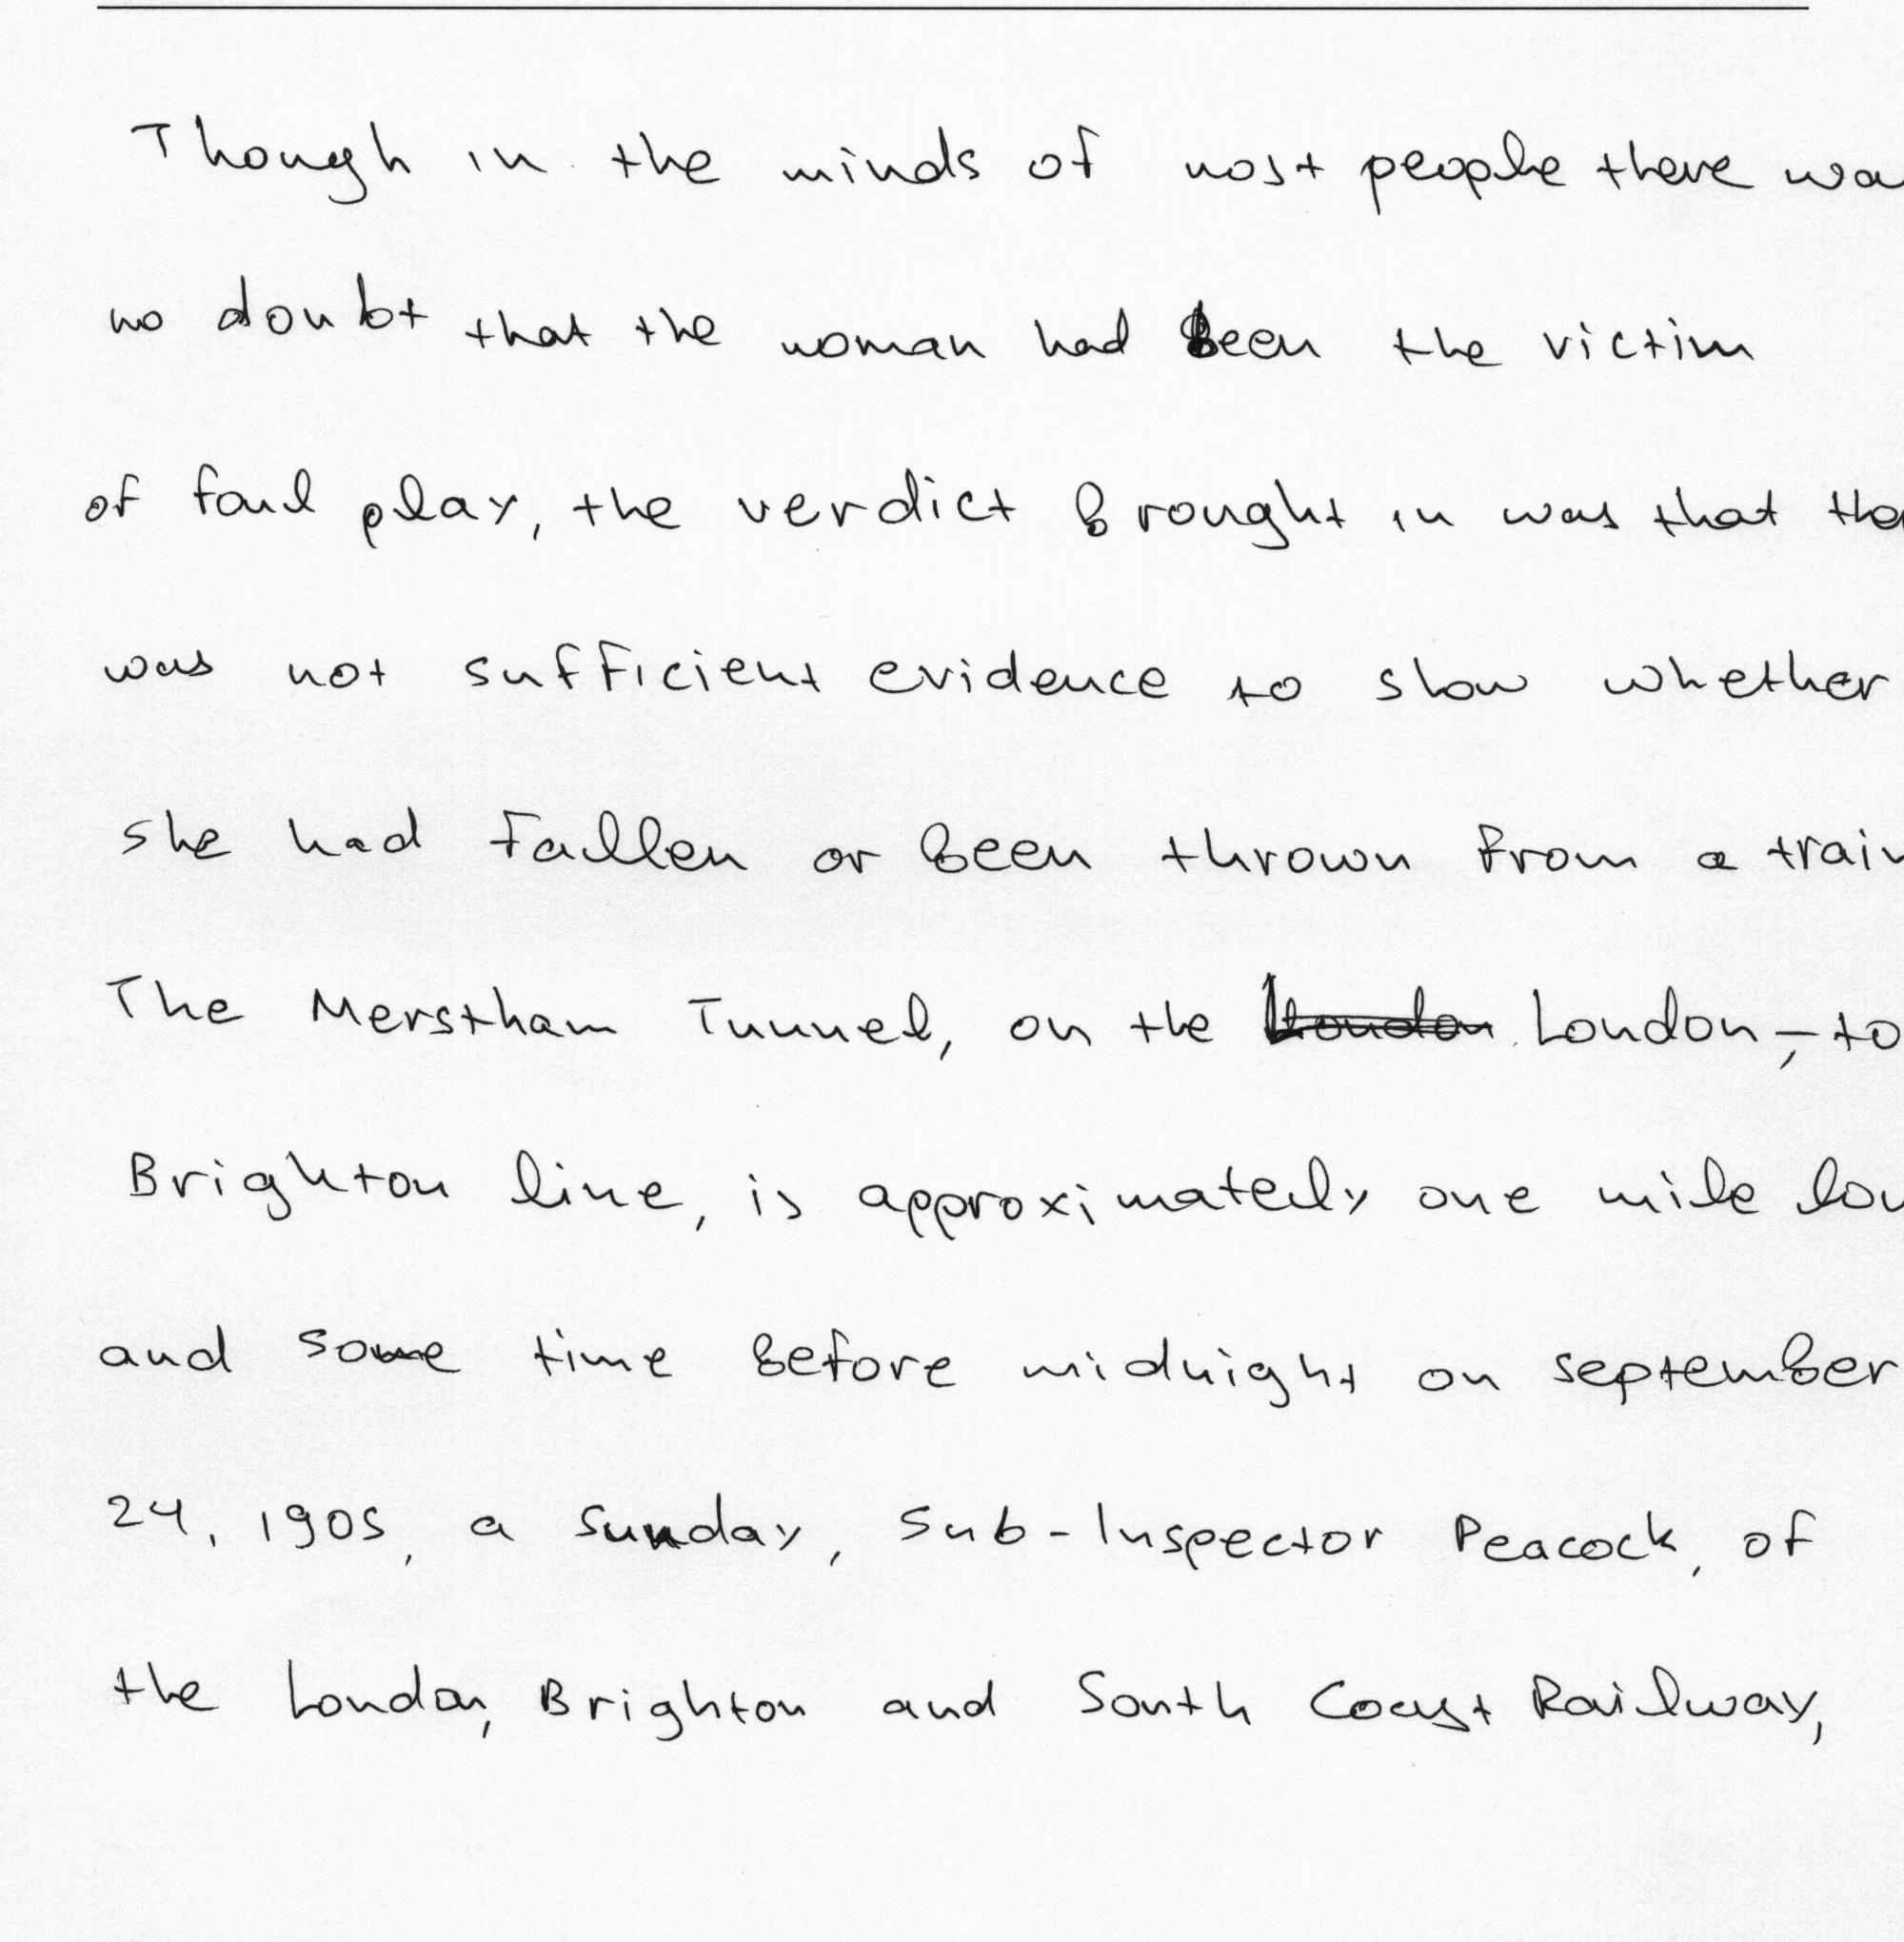 Though in the minds of most people there wa
no doubt that the woman had been the victim
of foul play, the verdict brought in was that the
was not sufficient evidence to show whether
she had fallen or been thrown from a train
The Merstham Tunnel, on the London London-to
Brighton line, is approximately one mile lon
and some time before midnight on september
24, 1905, a Sunday, Sub-Inspector Peacock, of
the London, Brighton and South Coast Railway,